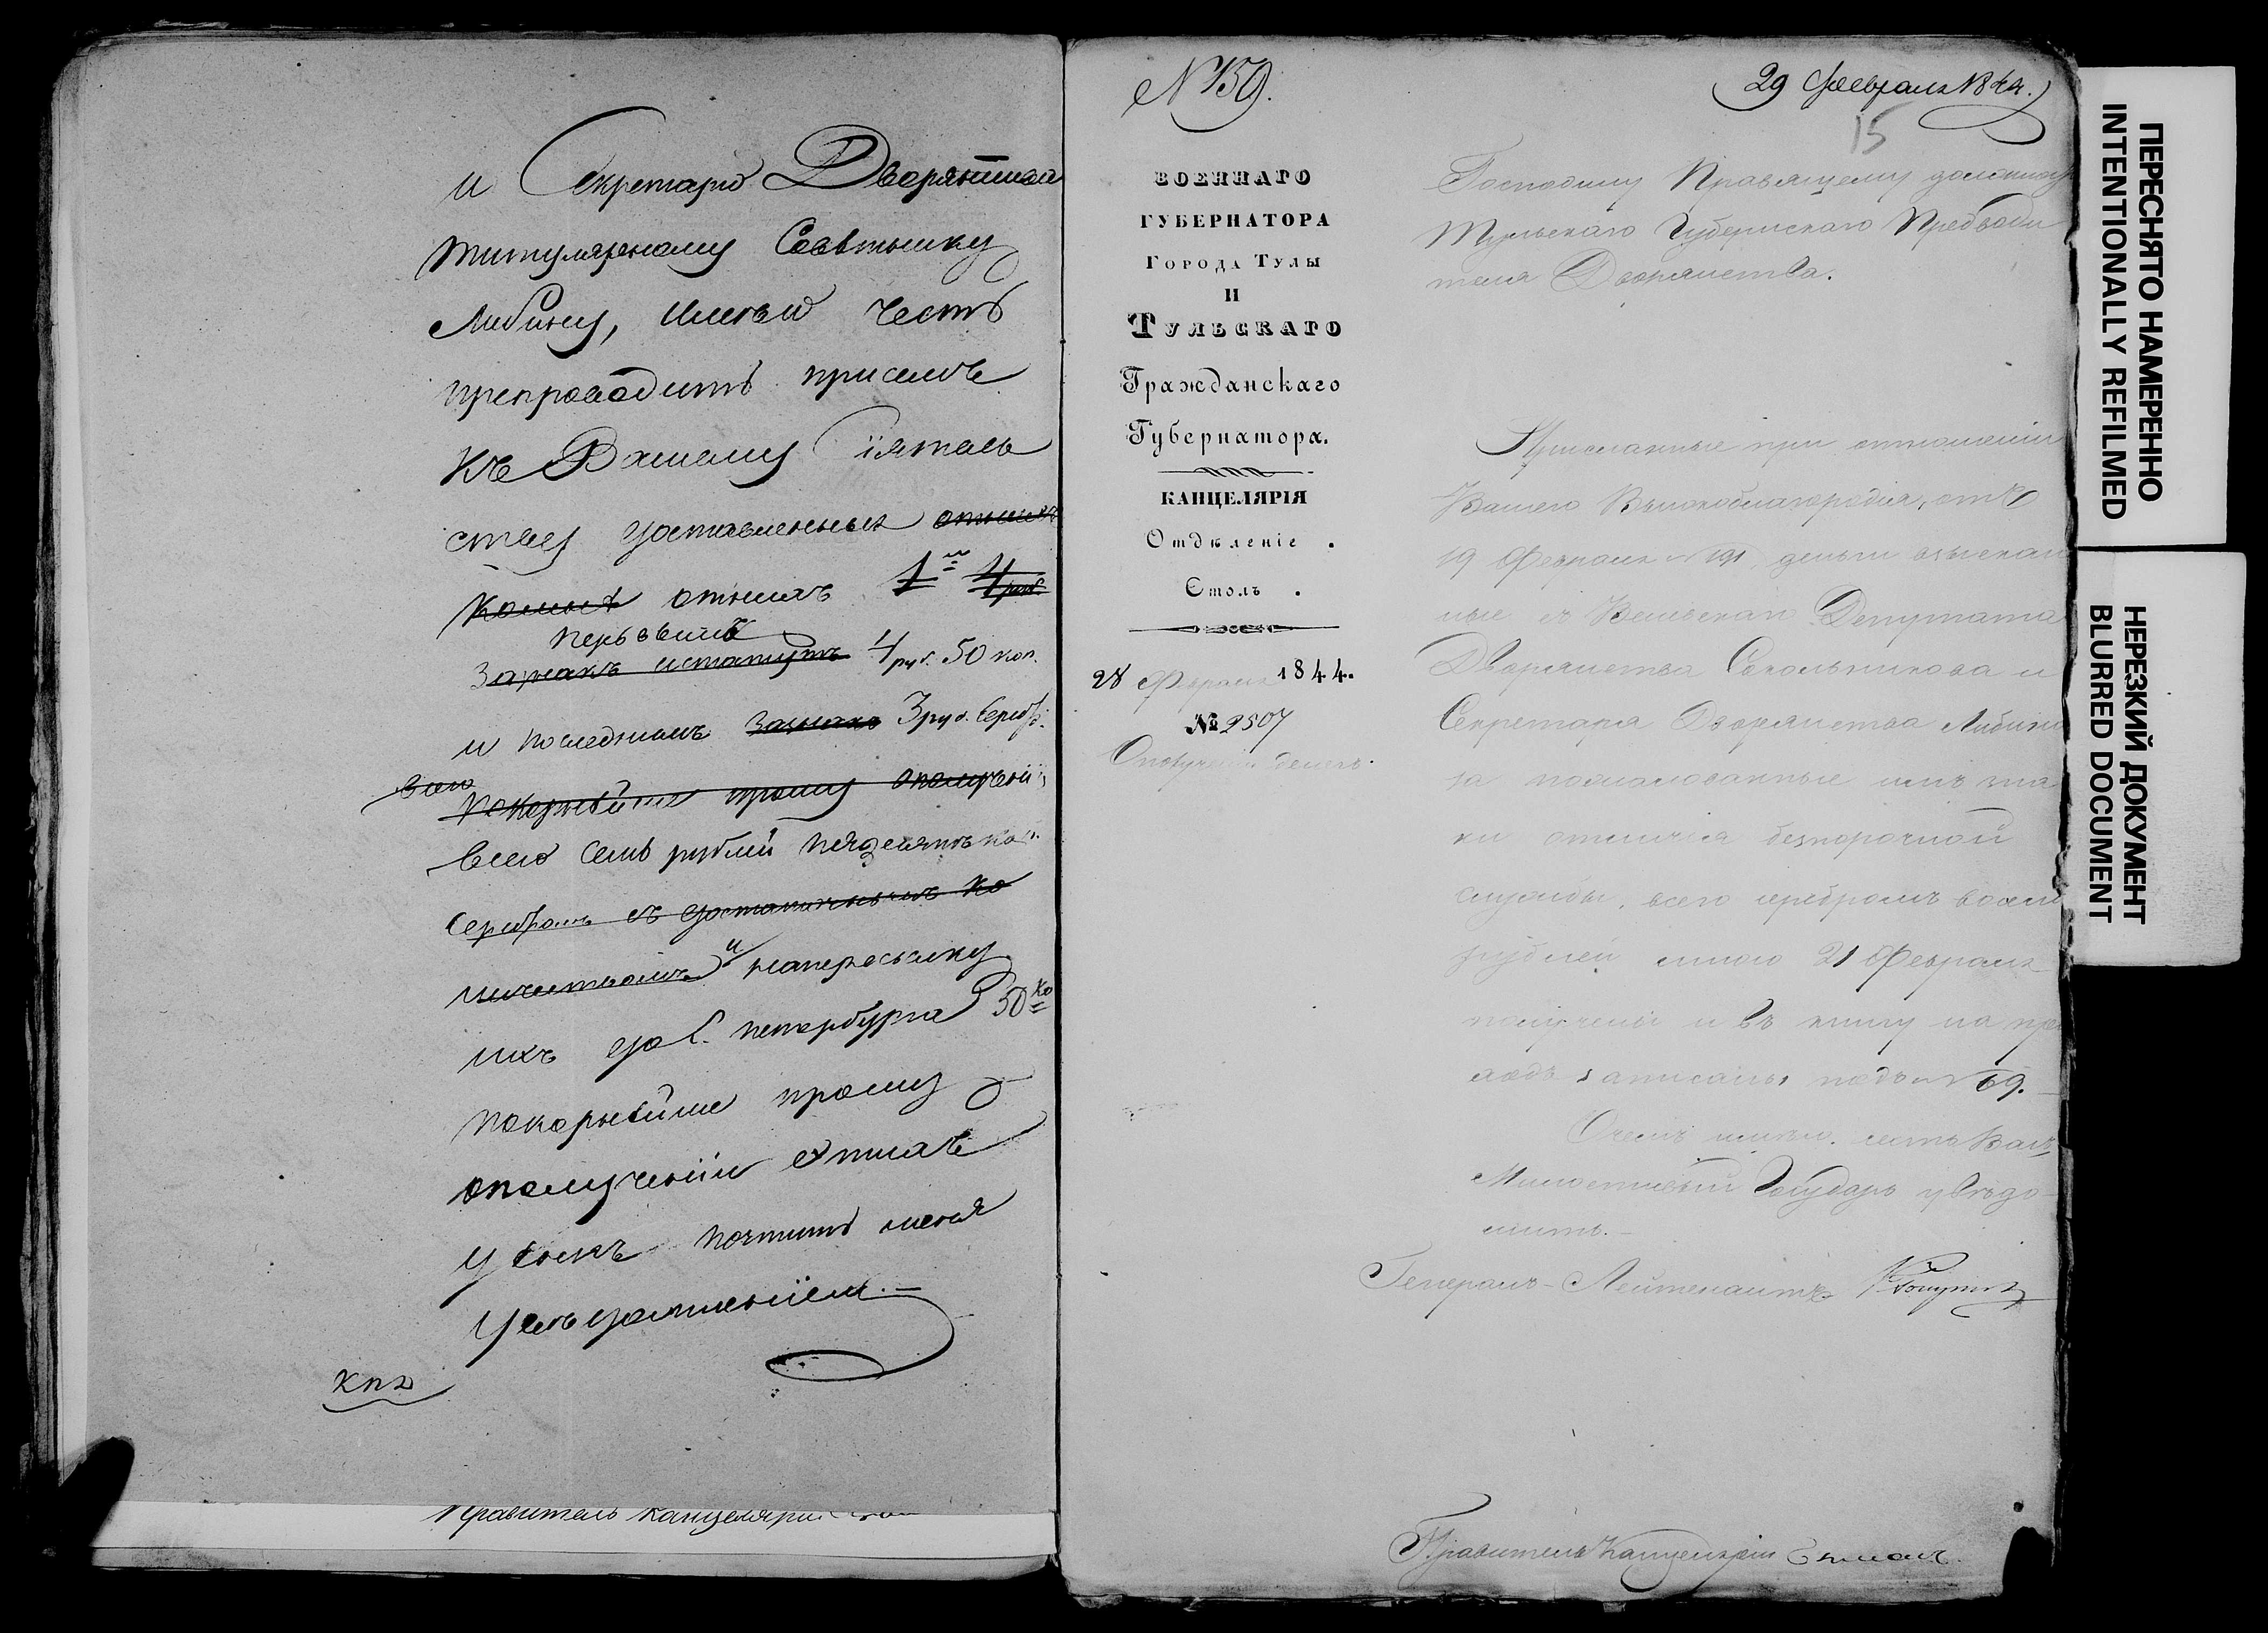 и Секретарю Дворянства
титулярному Советнику
Либину, имею честь
препроводить при семъ
къ Вашему Сіятель
ству доставленныя
отнихъ 1ii 4 руб
первымъ
За знакъ 4 руб. 50 коп.
и последнимъ За знакъ 3 руб. серебр.
всего
Покорнейше прошу о получении
всего семь рублей пядесятъ коп.
Серебромъ съ ко
личествомъ и на пересылку
ихъ до С. Петербурга 50 ко
покорнейше прошу
о получении
почтить меня
уведомленіем. —
КПД
Правитель Канцеляріи
N 159.
29 Февраля 1844.
15
ВОЕННАГО
ГУБЕРНАТОРА
Города Тулы
И
Тульскаго
Гражданскаго
Губернатора.
КАНЦЕЛЯРІЯ
Отдѣленіе .
Столъ .
28 Февраля 1844.
№ 2507
О полученіи денегъ.
Господину Правящему должность
Тульскаго Губернскаго Предводи
теля Дворянства.
Присланные при отношеніи
Вашего Высокоблагородія, отъ
19 Февраля N 191, деньги взыскан
ные съ Депутата
Дворянства Сокольникова и
Секретаря Дворянства Либина
за пожалованные имъ зна
ки отличія безпорочной
службы, всего серебромъ восемь
рублей мною 21 Февраля
получены и въ книгу на при
ходъ записаны подъ N 69.
О чемъ имѣю честь Васъ
Милостивый Государь увѣдо
мить. —
Генералъ-Лейтенантъ
Правитель Канцеляріи
ПЕРЕСНЯТО НАМЕРЕННО
INTENTIONALLY REFILMED
НЕРЕЗКИЙ ДОКУМЕНТ
BLURRED DOCUMENT